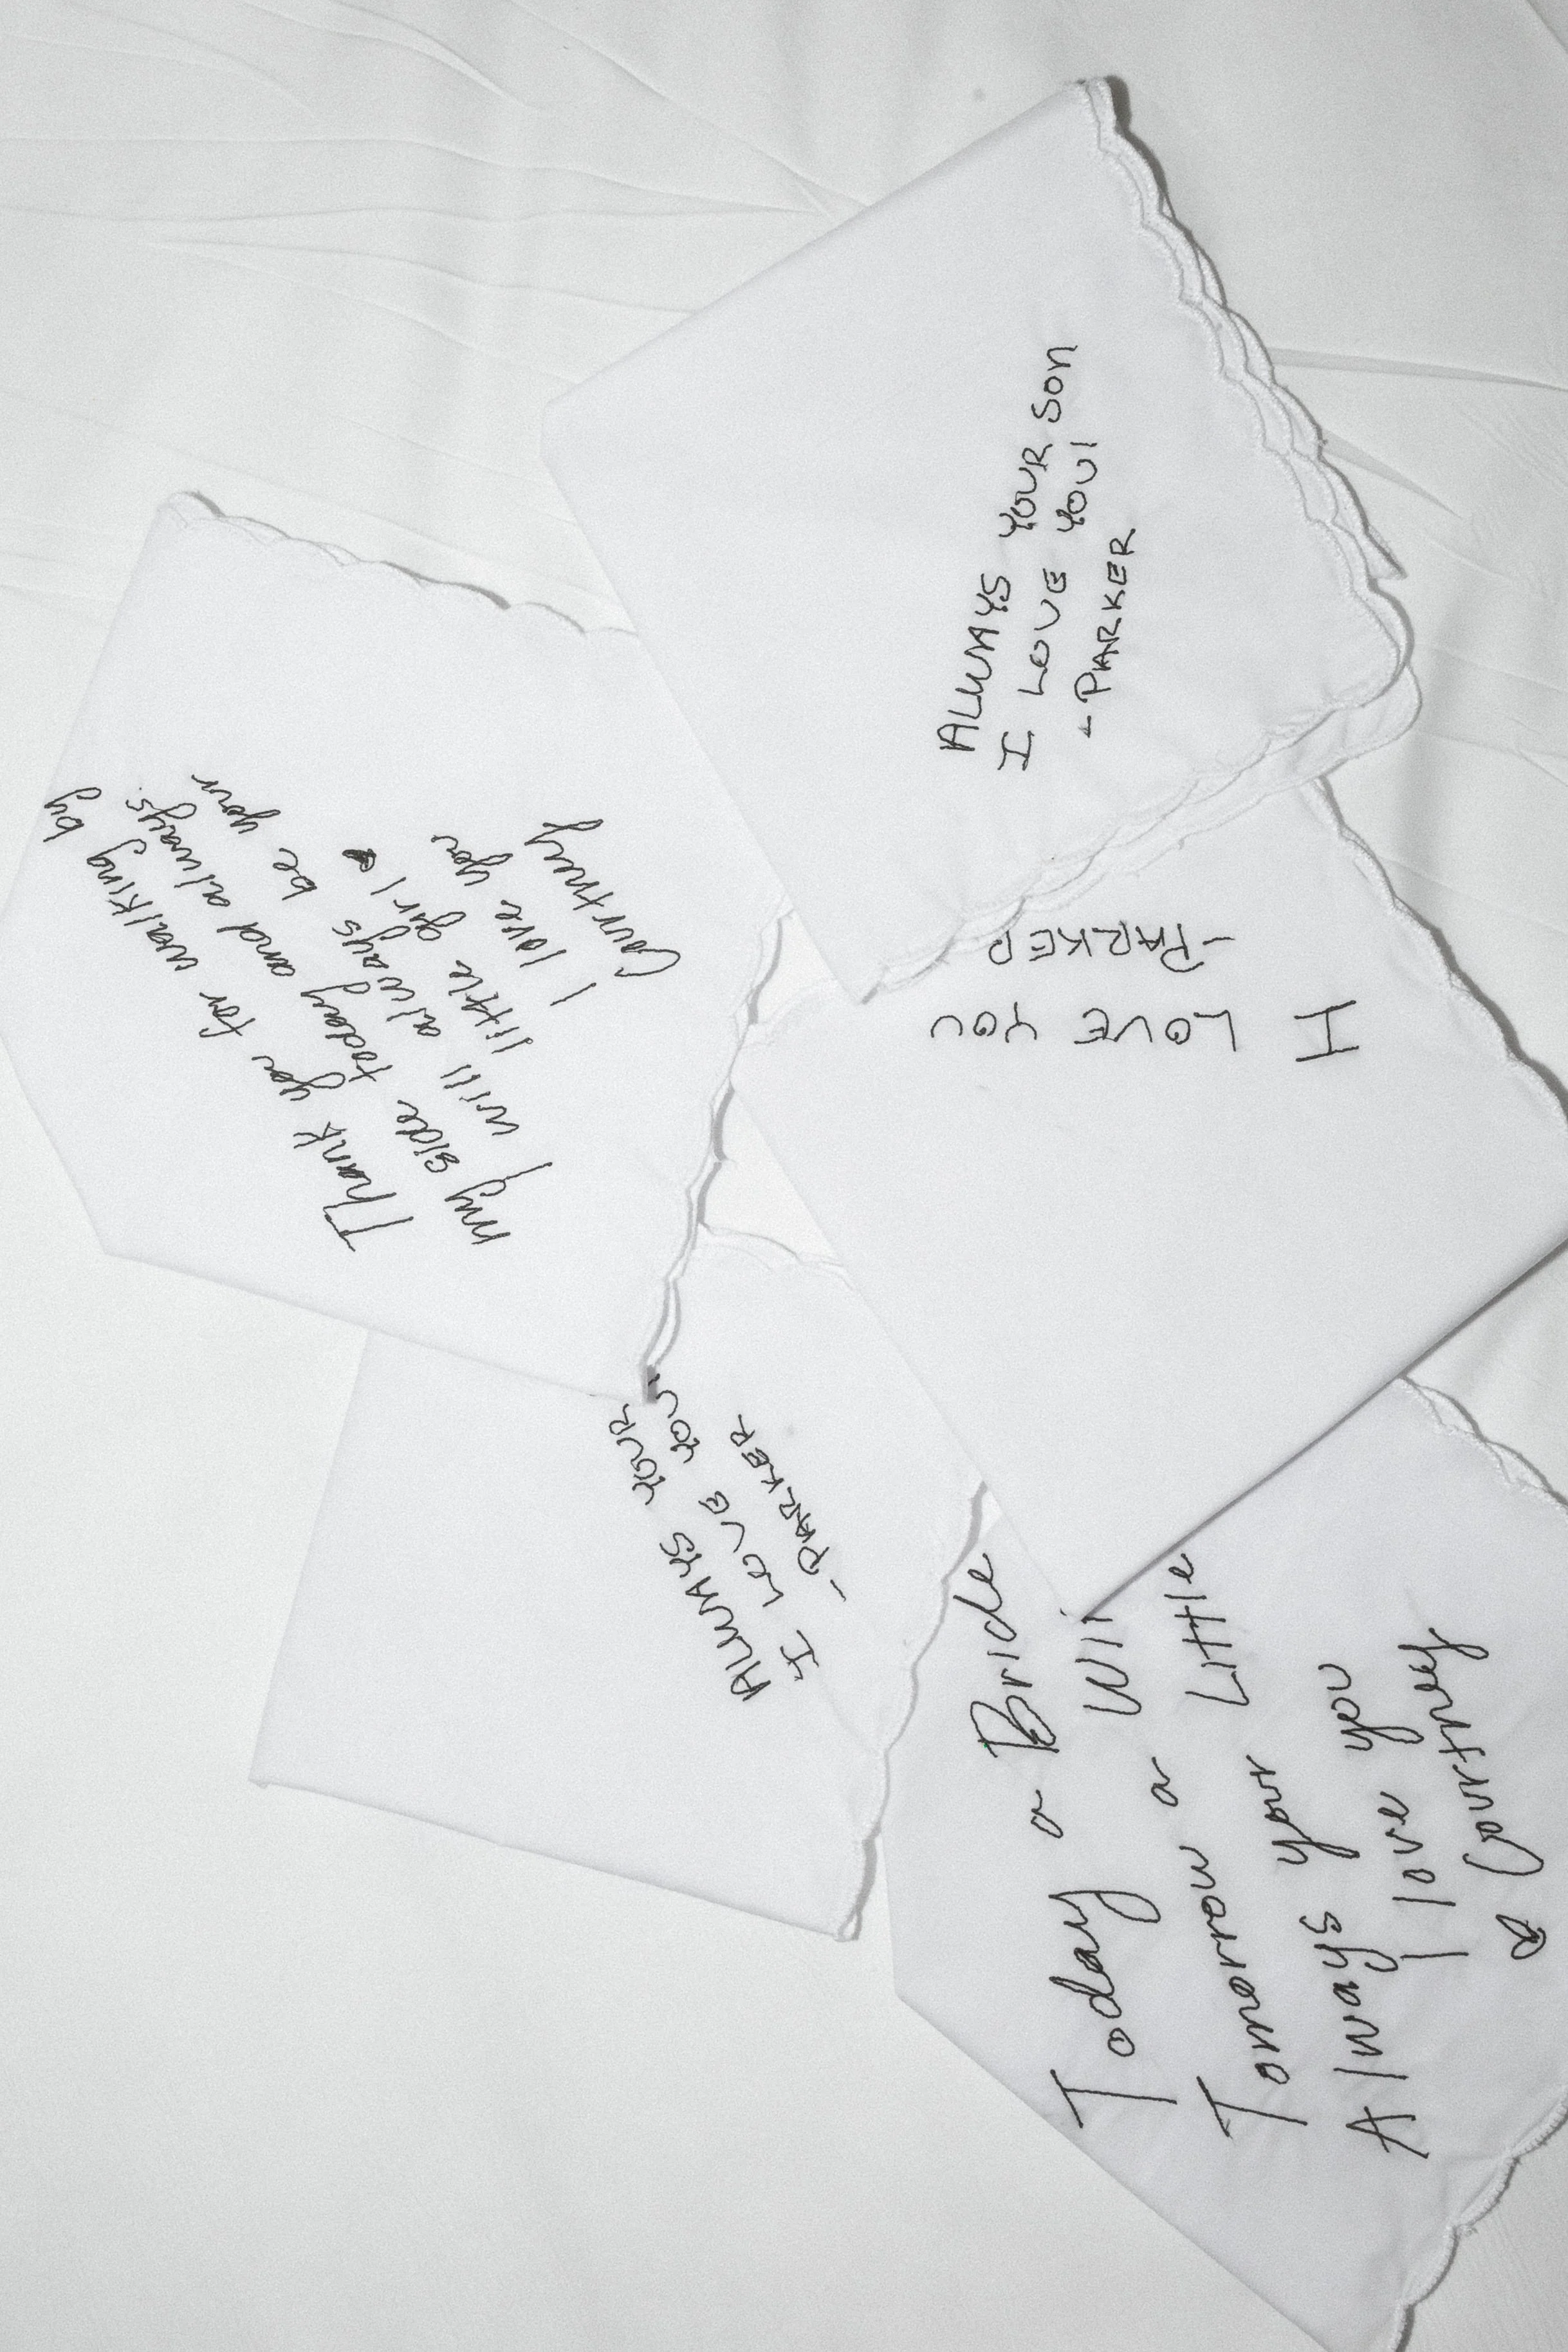 ALWAYS YOUR SON
I LOVE YOU!
- PARKER
Thank you for walking by
my side today and always.
I will always be your
little girl
I love you
Courtney
I LOVE YOU
- PARKER
ALWAYS YOUR
I LOVE YOU
- PARKER
Today a Bride
Tomorrow a
Always your Little
I love you
Courtney